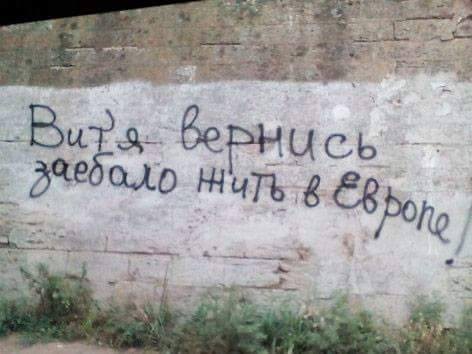 Вит'я вернись
заебало жить в Европе!